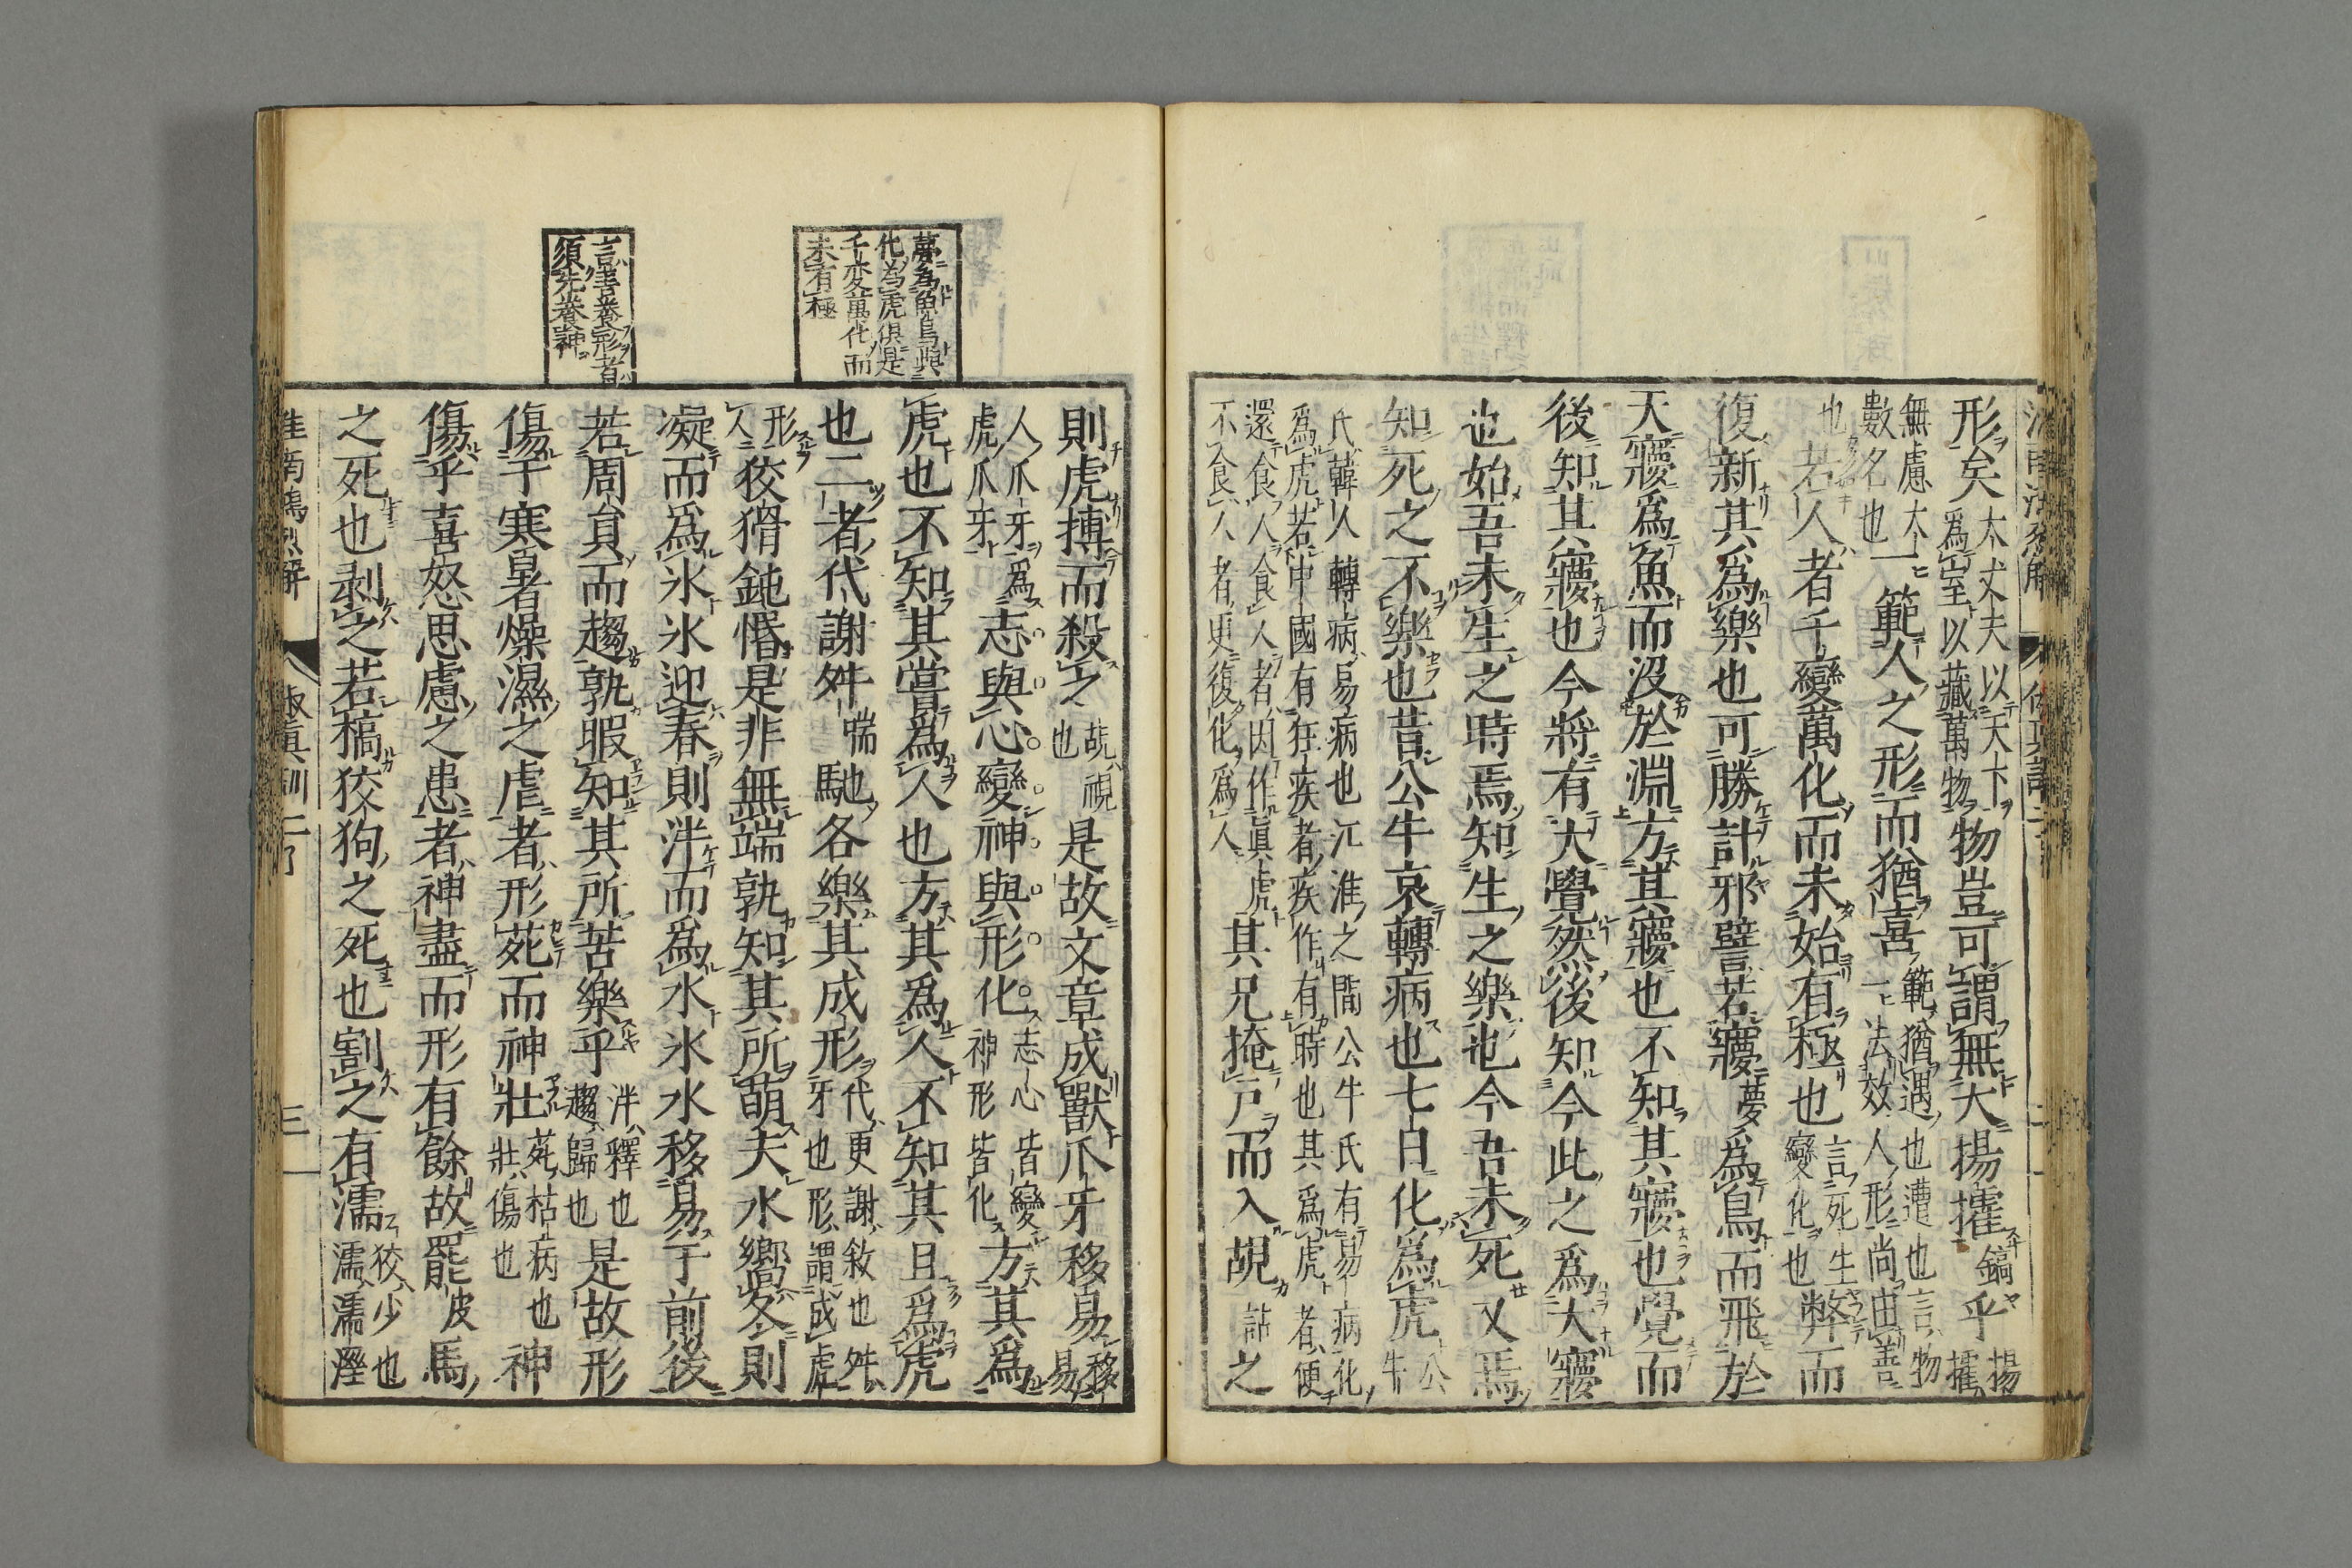 淮南鴻烈解 俶真訓二 二
形矣太丈夫以天下爲室以藏萬物物豈可謂無大揚攉鎬乎揚攉
無慮大數名也一範人之形而猶喜範猶遇也遭也言物一法效人形尚由善
也若人者千變萬化而未始有極也言死生變化也弊而
復新其爲樂也可勝計邪譬若㝱夢爲鳥而飛於
天㝱爲魚而沒於淵方其㝱也不知其㝱也覺而
後知其㝱也今將有大覺然後知今此之爲大㝱
也始吾未生之時焉知生之樂也今吾未死又焉
知死之不樂也昔公牛哀轉病也七日化爲虎公牛
氏韓人轉病易病也江淮之間公牛氏有易病化
爲虎若中國有狂疾者疾作有時也其爲虎者便
還食人食人者因作眞虎不食人者更復化爲人其兄掩戶而入覘詁之
夢為魚鳥與
化為虎俱是
千変萬化而
未有極
言善養形者
須先養神
則虎搏而殺之覘視也是故文章成獸爪牙移易移易
人爪牙爲虎爪牙志與心變神與形化志心皆變神形皆化方其爲
虎也不知其嘗爲人也方其爲人不知其且爲虎
也二者代謝舛喘馳各樂其成形代更謝敘也舛牙也形謂成虎
形人狡猾鈍惛是非無端孰知其所萌夫水嚮冬則
凝而爲冰冰迎春則泮而爲水冰水移易于前後
若周員而趨孰暇知其所苦樂乎泮釋也趨歸也是故形
傷于寒暑燥濕之虐者形苑而神壯苑枯病也壯傷也神
傷乎喜怒思慮之患者神盡而形有餘故罷皮馬
之死也剥之若槁狡狗之死也割之有濡狡少也濡濡溼
淮南鴻烈解 俶真訓二 三